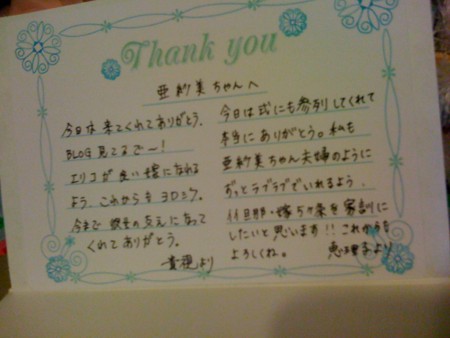 Thank you
亜紗美ちゃんへ
今日は来てくれてありがとう。
BLOG見てるでー!
エリコが良い嫁になれる
よう、これからもヨロシク。
今まで彼女の支えになって
くれてありがとう。
貴規より
今日は式にも参列してくれて
本当にありがとう。私も
亜紗美ちゃん夫婦のように
ずっとラブラブでいれるよう、
旦那・嫁ちゃ条を家訓に
したいと思います!!これからも
よろしくね。
恵理子より